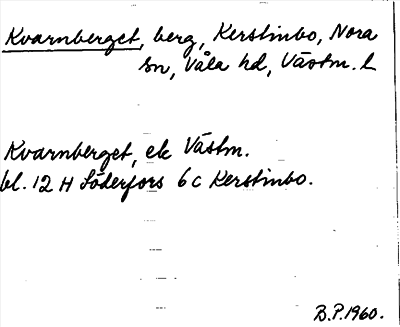 Kvarnberget, berg, Kerstinbo, Nora
sn, Våla hd, Västm. l
Kvarnberget, ek Västm.
bl. 12 H Söderfors 6 c Kerstinbo.
B.P. 1960.